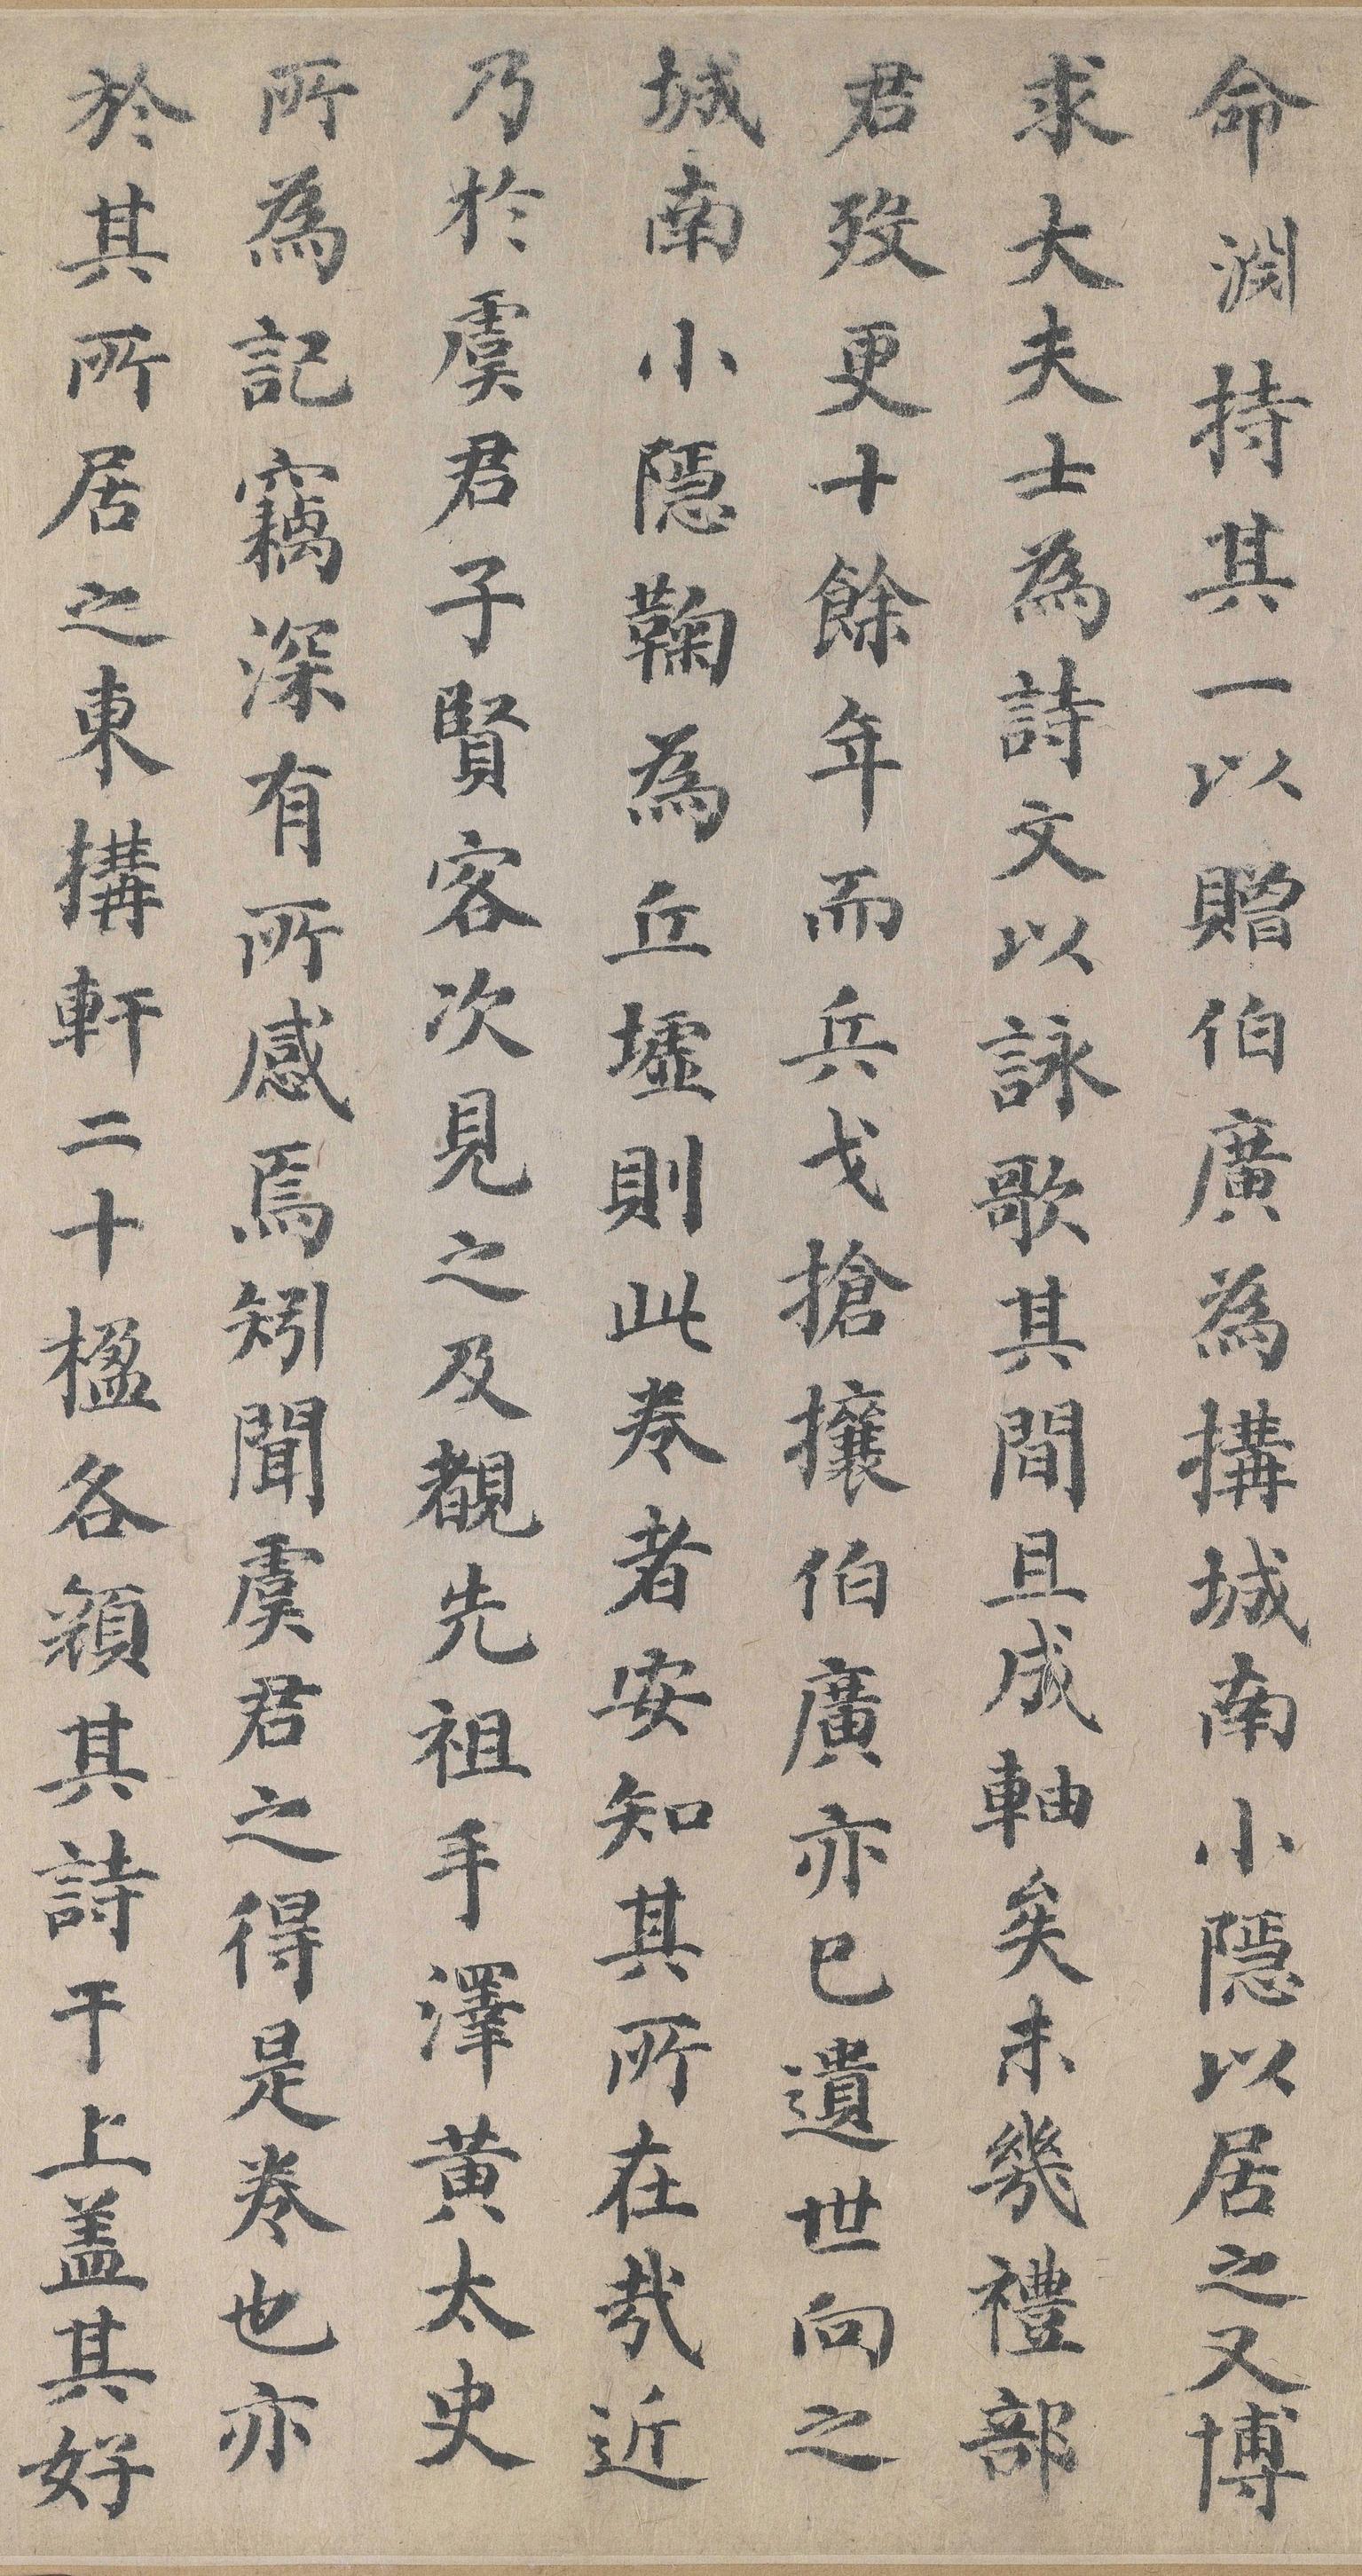 命渊持其一以贈伯廣為搆城南小隱以居之又博
求大夫士為詩文以詠歌其間且成軸矣未幾禮部
君歿更十餘年而兵戈搶攘伯廣亦已遺世向之
城南小隱鞠為丘墟則此卷者安知其所在哉近
乃於虞君子賢客次見之及覩先祖手澤黄太史
所為記竊深有所感焉矧聞虞君之得是卷也亦
於其所居之東搆軒二十楹各額其詩于上盖其好